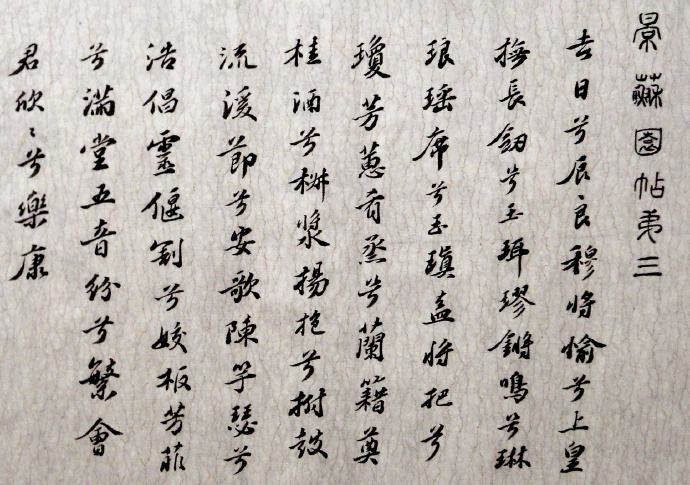 景蘇園帖弟三
吉日兮辰良穆將愉兮上皇
撫長劒兮玉珥璆鏘鳴兮琳
琅瑶席兮玉瑱盍將把兮
瓊芳蕙肴蒸兮蘭籍奠
桂酒兮椒漿揚枹兮拊鼓
流溪節兮安歌陳竽瑟兮
浩倡靈偃蹇兮姣服芳菲
兮滿堂五音紛兮繁會
君欣〻兮樂康